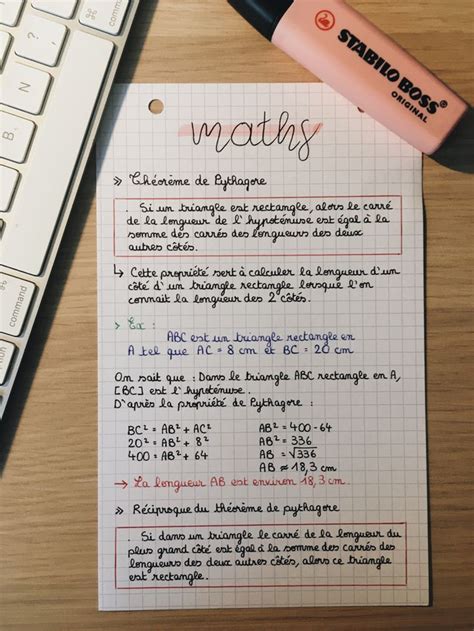 command
N
B
command
STABILO BOSS
ORIGINAL
maths
» Théorème de Pythagore
. Si un triangle est rectangle, alors le carré
de la longueur de l'hypoténuse est égal à la
somme des carrés des longueurs des deux
autres côtés.
↳ Cette propriété sert à calculer la longueur d'un
côté d'un triangle rectangle lorsque l'on
connait la longueur des 2 côtés.
> Ex :
ABC est un triangle rectangle en
A tel que AC = 8 cm et BC = 20 cm
On sait que : Dans le triangle ABC rectangle en A,
[BC] est l'hypoténuse.
D'après la propriété de Pythagore :
BC² = AB² + AC²
20² = AB² + 8²
400 = AB² + 64
AB² = 400 - 64
AB² = 336
AB = √336
AB ≈ 18,3 cm
→ La longueur AB est environ 18,3 cm.
» Réciproque du théorème de pythagore
. Si dans un triangle le carré de la longueur du
plus grand côté est égal à la somme des carrés des
longueurs des deux autres côtés, alors ce triangle
est rectangle.